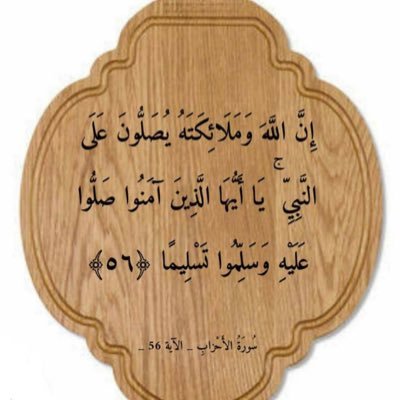 إِنَّ اللَّهَ وَمَلَائِكَتَهُ يُصَلُّونَ عَلَى
النَّبِيِّ ۚ يَا أَيُّهَا الَّذِينَ آمَنُوا صَلُّوا
عَلَيْهِ وَسَلِّمُوا تَسْلِيمًا ﴿٥٦﴾
سُورَةُ الأَحْزَابِ _ الآية 56 _